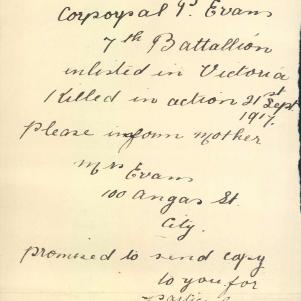 Corpoysal Gd. Evans
7th Battallion
inlisted in Victoria
Killed in action 21st Sept.
1917.
please inform Mother
Mrs Evans
100 Angas St.
City.
promised to send copy
to you for